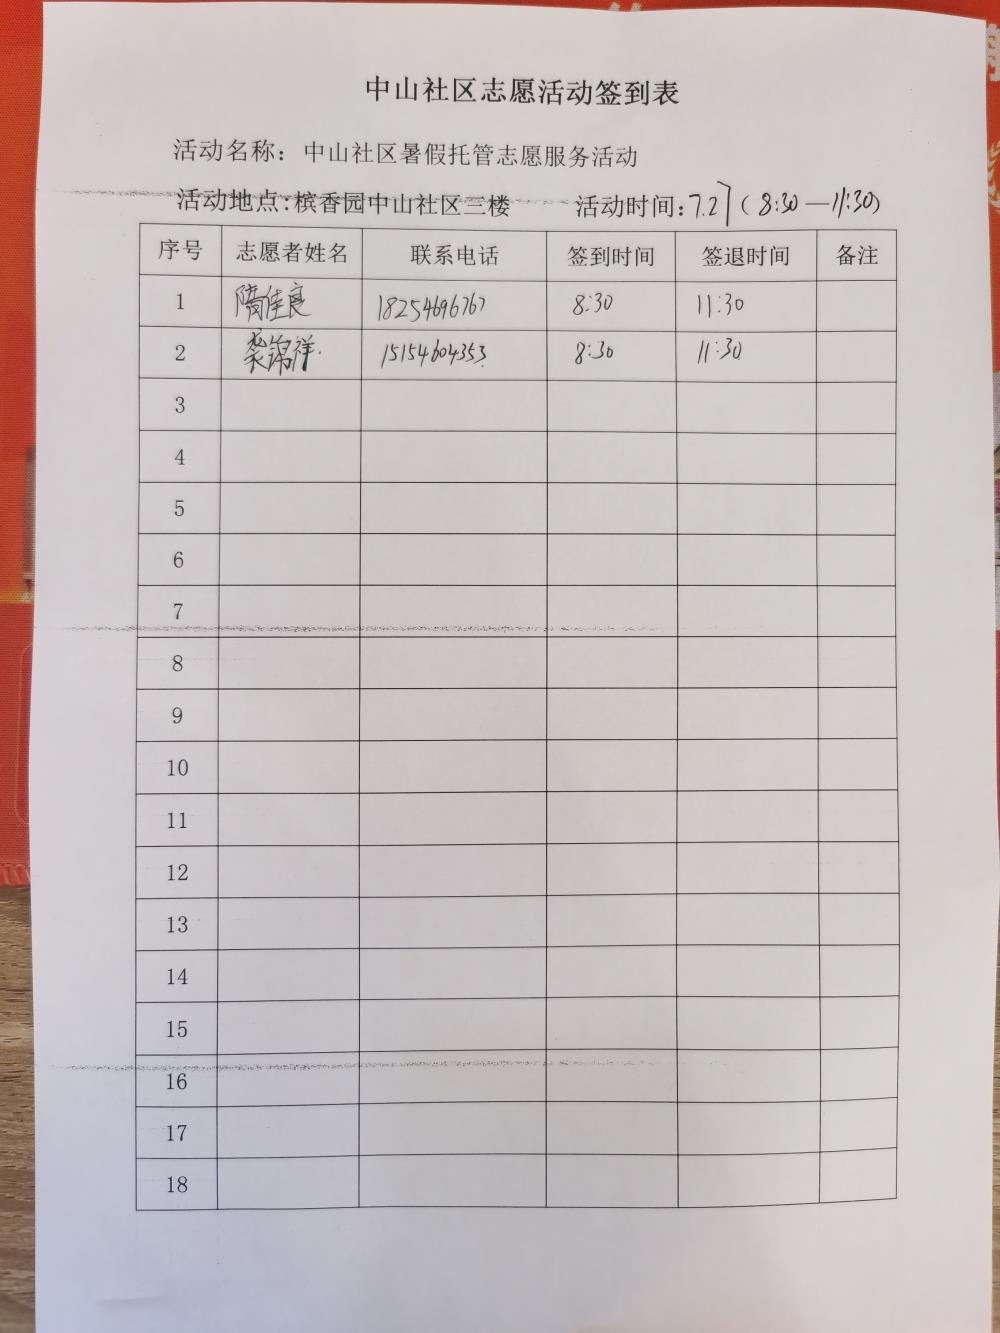 中山社区志愿活动签到表
活动名称：中山社区暑假托管志愿服务活动
活动地点:槟香园中山社区三楼 活动时间:7.27(8:30—11:30)
序号 志愿者姓名 联系电话 签到时间 签退时间 备注
1 隋佳良 18254696767 8:30 11:30
2 龚锦祥 15154604353 8:30 11:30
3
4
5
6
7
8
9
10
11
12
13
14
15
16
17
18